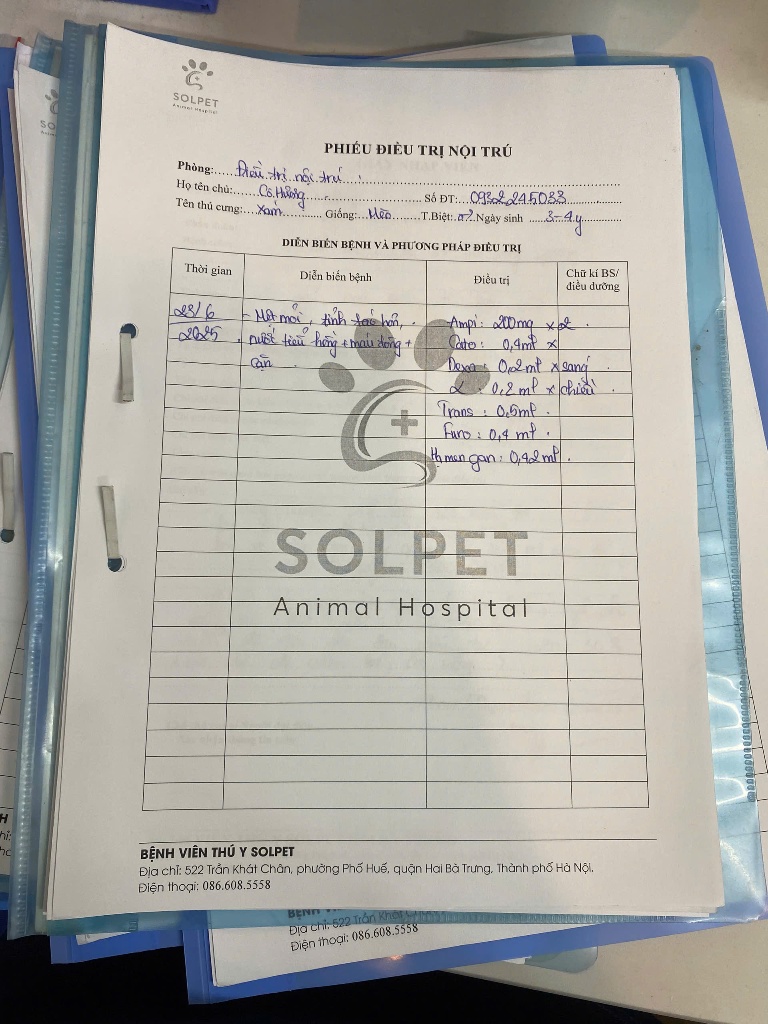 SOLPET
Animal Hospital
PHIẾU ĐIỀU TRỊ NỘI TRÚ
Phòng: Điều trị nội trú
Họ tên chủ: Cô Hương Số ĐT: 0932245033
Tên thú cưng: Xám Giống: Mèo T.Biệt: ♂ Ngày sinh 3-4y
DIỄN BIẾN BỆNH VÀ PHƯƠNG PHÁP ĐIỀU TRỊ
Thời gian Diễn biến bệnh Điều trị Chữ kí BS/ điều dưỡng
23/6 - Mệt mỏi, tỉnh táo hơn, Ampi: 200mg x 2
2025 nước tiểu hồng + máu đông + Cato: 0,4ml x
cặn Dexa: 0,2ml x sáng
2: 0,2ml x chiều
Trans: 0,5ml
Furo: 0,4 ml
gan: 0,42ml
SOLPET
Animal Hospital
BỆNH VIÊN THÚ Y SOLPET
Địa chỉ: 522 Trần Khát Chân, phường Phố Huế, quận Hai Bà Trưng, Thành phố Hà Nội.
Điện thoại: 086.608.5558
Địa chỉ: 522 Trần Khát
Điện thoại: 086.608.5558